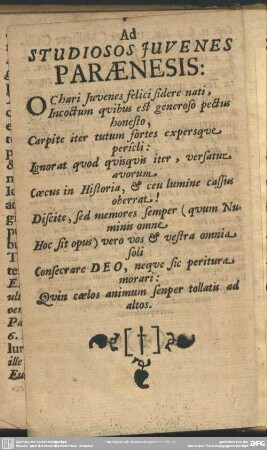 Ad
STUDIOSOS JUVENES
PARÆNESIS:
O Chari Juvenes felici sidere nati,
Incoctum qvibus est generoso pectus
honesto,
Carpite iter tutum sortes expersqve
pericli:
Ignorat qvod qvisqvis iter, versatur
avorum
Cœcus in Historia, & ceu lumine cassus
oberrat!
Discite, sed memores semper (qvum Nu-
minis omne
Hoc sit opus) vero vos & vestra omnia
soli
Consecrare DEO, neqve sic peritura
morari:
Qvin cœlos animum senper tollatis ad
altos.